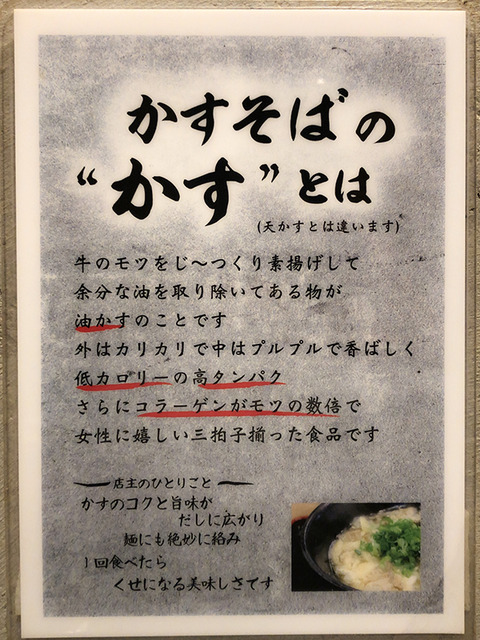 かすそばの
“かす”とは
(天かすとは違います)
牛のモツをじ～つくり素揚げして
余分な油を取り除いてある物が
油かすのことです
外はカリカリで中はプルプルで香ばしく
低カロリーの高タンパク
さらにコラーゲンがモツの数倍で
女性に嬉しい三拍子揃った食品です
店主のひとりごと
かすのコクと旨味が
だしに広がり
麺にも絶妙に絡み
1回食べたら
くせになる美味しさです